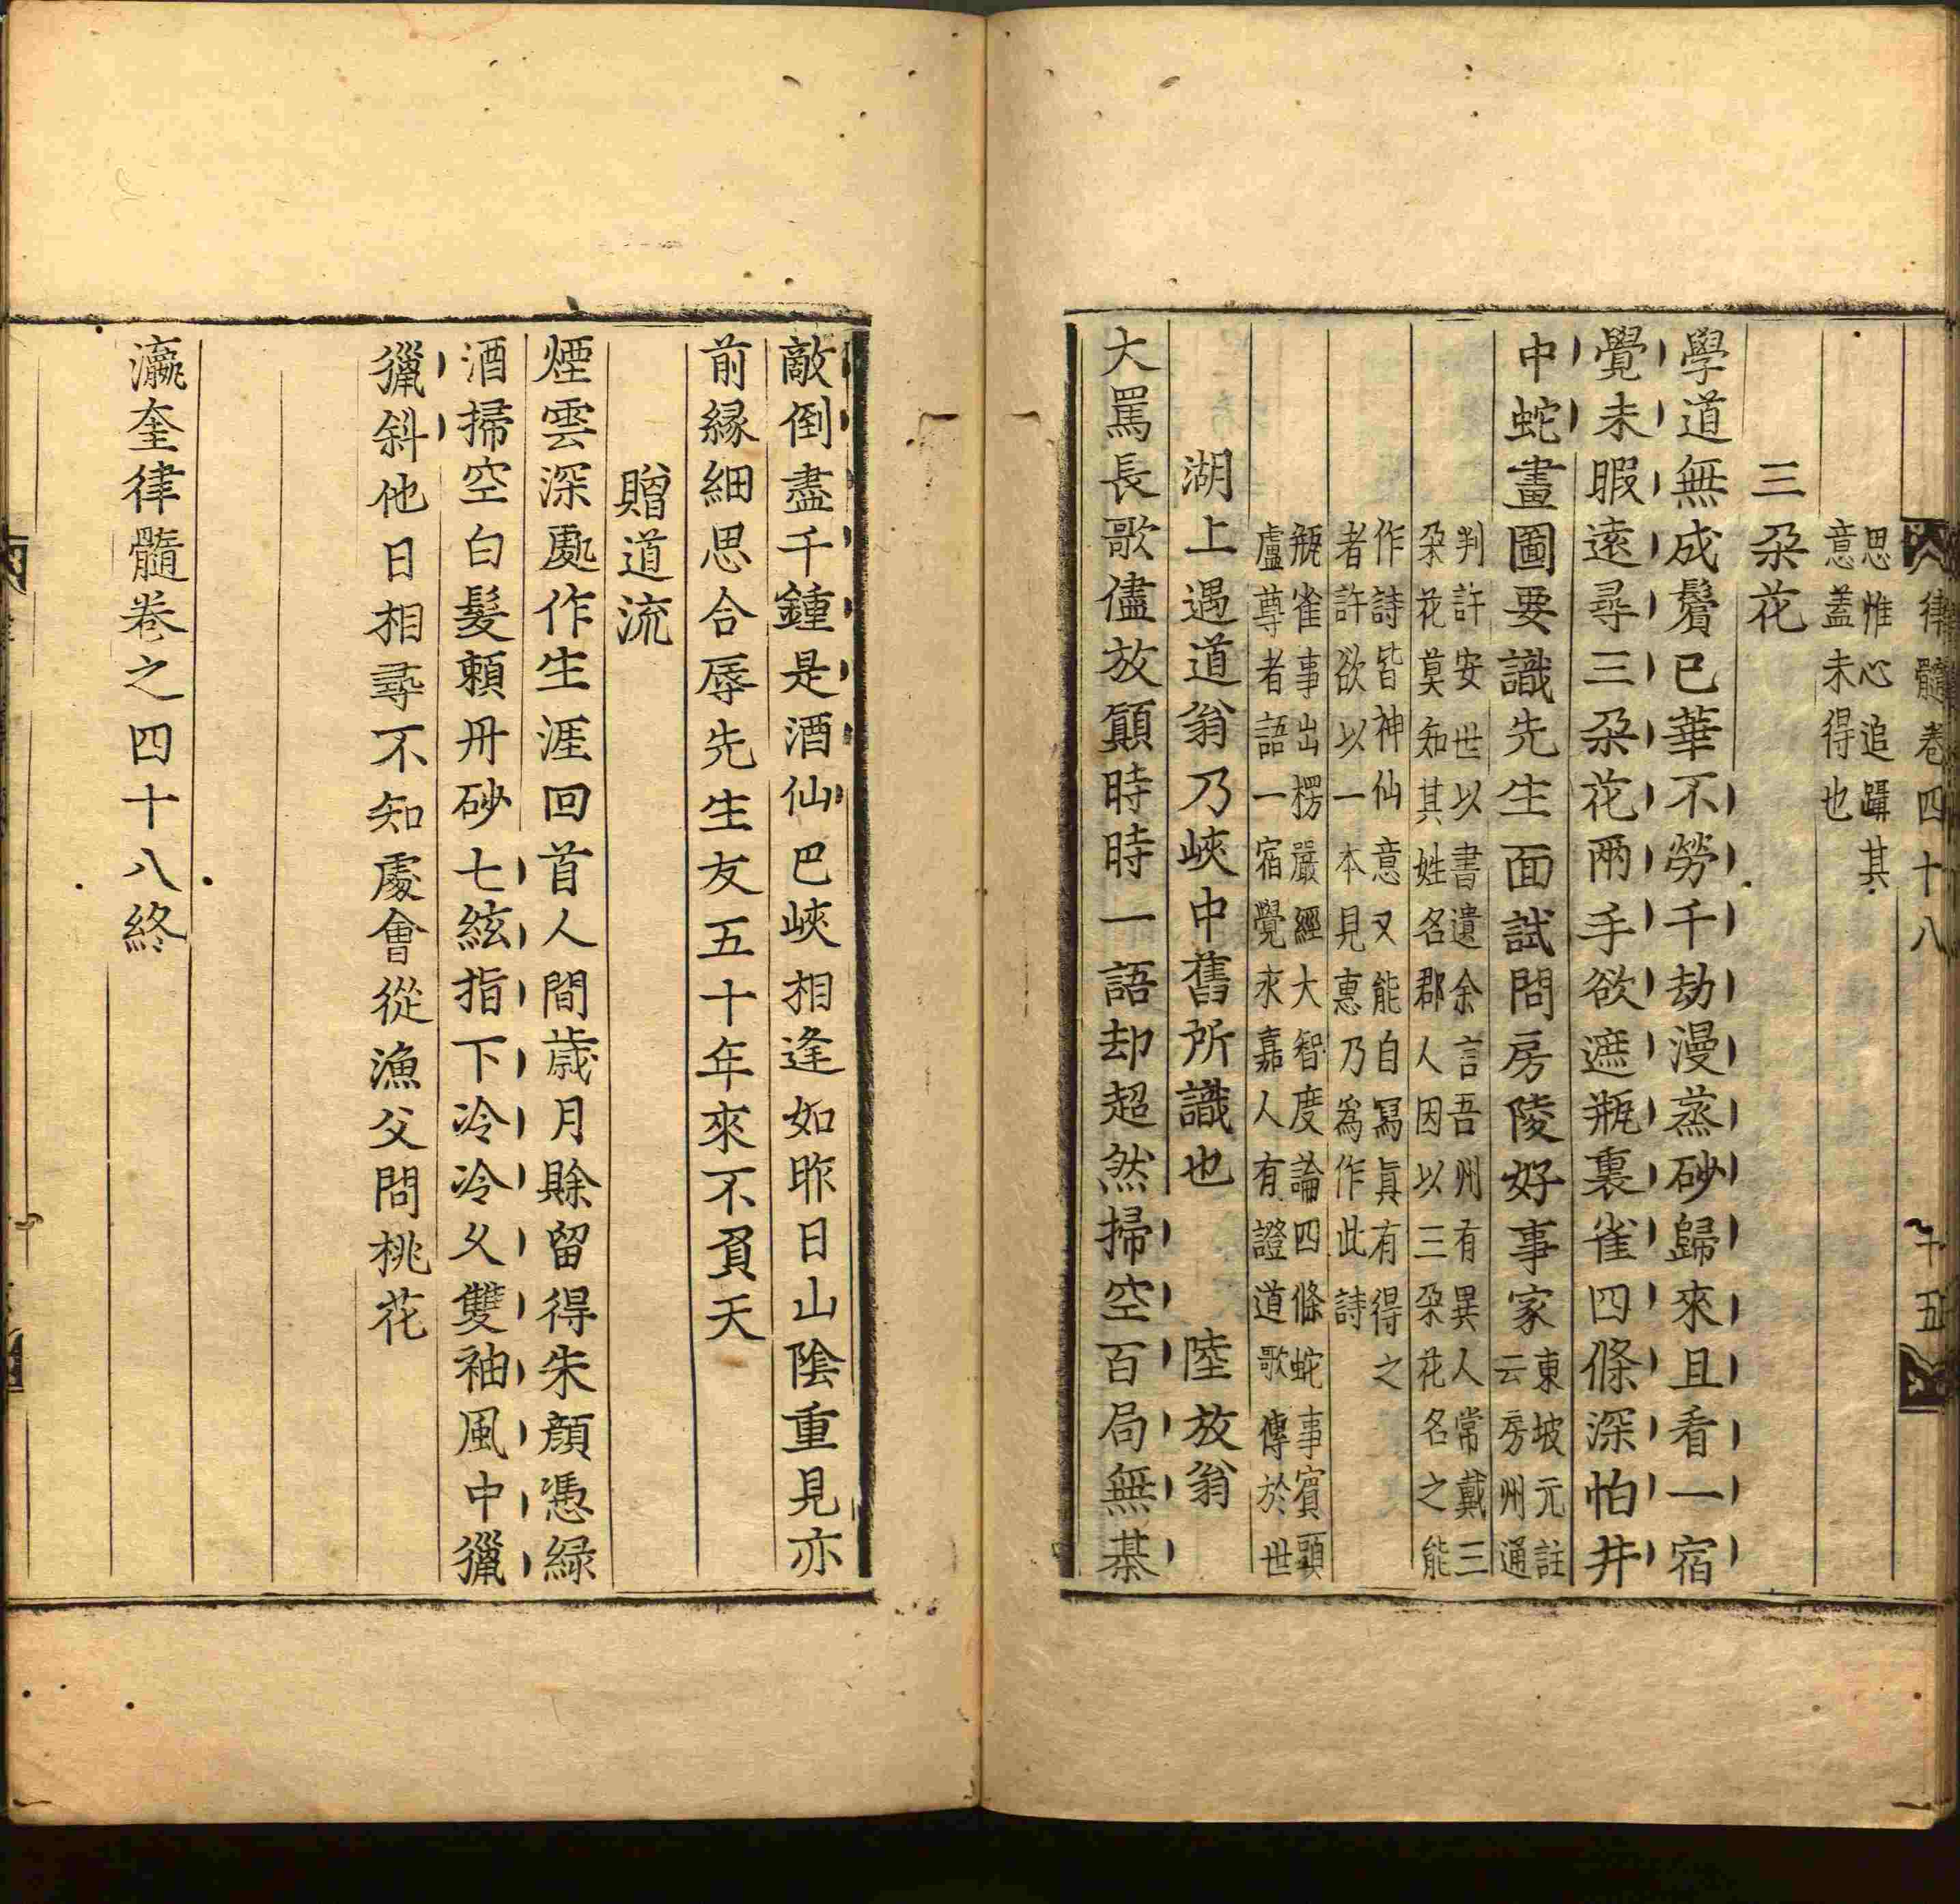 律髓卷四十八　十五
思惟心追躡其
意蓋未得也
三朶花
學道無成鬢已華不勞千劫漫蒸砂歸來且看一宿
覺未暇遠尋三朶花兩手欲遮瓶裏雀四條深怕井
中蛇畫圖要識先生面試問房陵好事家
東坡元註
云房州通
判許安世以書遺余言吾州有異人常戴三
朶花莫知其姓名郡人因以三朶花名之能
作詩皆神仙意又能自寫眞有得之
者許欲以一本見惠乃爲作此詩
瓶雀事出楞嚴經大智度論四條蛇事賓頭
盧尊者語一宿覺永嘉人有證道歌傳於世
湖上遇道翁乃峽中舊所識也　陸放翁
大罵長歌儘放顚時時一語却超然掃空百局無棊
敵倒盡千鍾是酒仙巴峽相逢如昨日山陰重見亦
前縁細思合辱先生友五十年來不負天
贈道流
煙雲深處作生涯回首人間歲月賖留得朱顔憑綠
酒掃空白髮頼丹砂七絃指下冷冷久雙袖風中獵
獵斜他日相尋不知處會從漁父問桃花
瀛奎律髓卷之四十八終